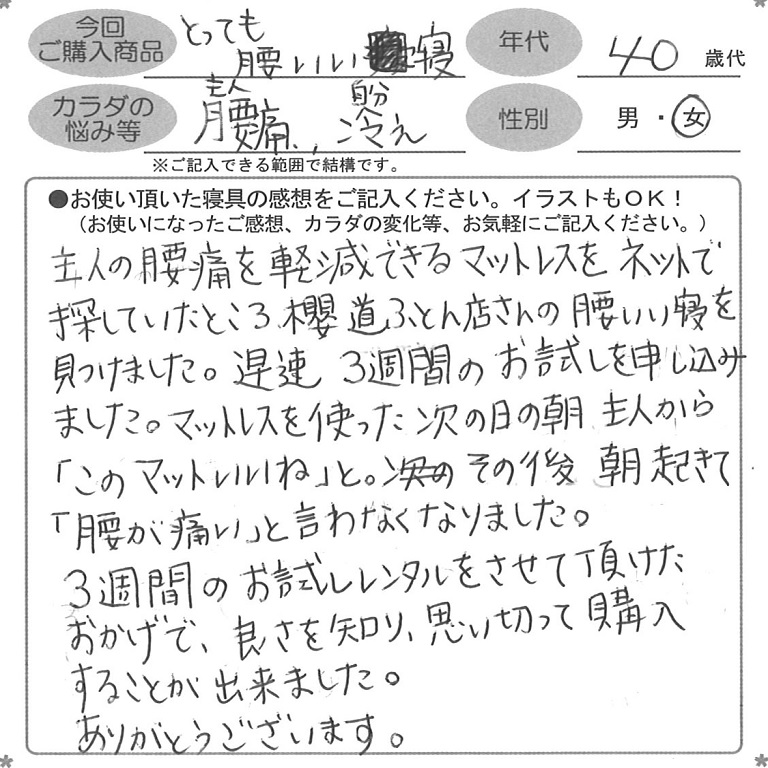 今回
ご購入商品
とっても
腰いい寝
年代
40 歳代
カラダの
悩み等
主人 自分
腰痛、冷え
性別
男・女
※ご記入できる範囲で結構です。
●お使い頂いた寝具の感想をご記入ください。イラストもOK！
（お使いになったご感想、カラダの変化等、お気軽にご記入ください。）
主人の腰痛を軽減できるマットレスをネットで
探していたところ櫻道ふとん店さんの腰いい寝を
見つけました。早速 3週間のお試しを申し込み
ました。マットレスを使った次の日の朝 主人から
「このマットいいね」と。その後 朝起きて
「腰が痛い」と言わなくなりました。
3週間のお試しレンタルをさせて頂けた
おかげで、良さを知り、思い切って購入
することが出来ました。
ありがとうございます。